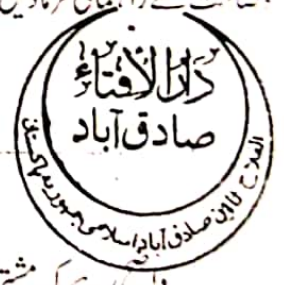 دارالافتاء
صادق آباد
الفلاح ٹاؤن صادق آباد اسلامی جمہوریہ پاکستان